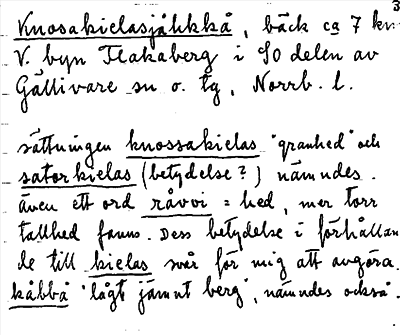 3
Knosakielasjåkkå, bäck ca 7 km
V. byn Flakaberg i SO delen av
Gällivare sn o. tg, Norrb. l.
sättningen knossakielas "granhed" och
satorkielas (betydelse?) nämndes.
även ett ord råvvi = hed, mer torr
tallhed fanns. Dess betydelse i förhållan
de till kielas svår för mig att avgöra.
kåbbå "lågt jämnt berg", nämndes också.